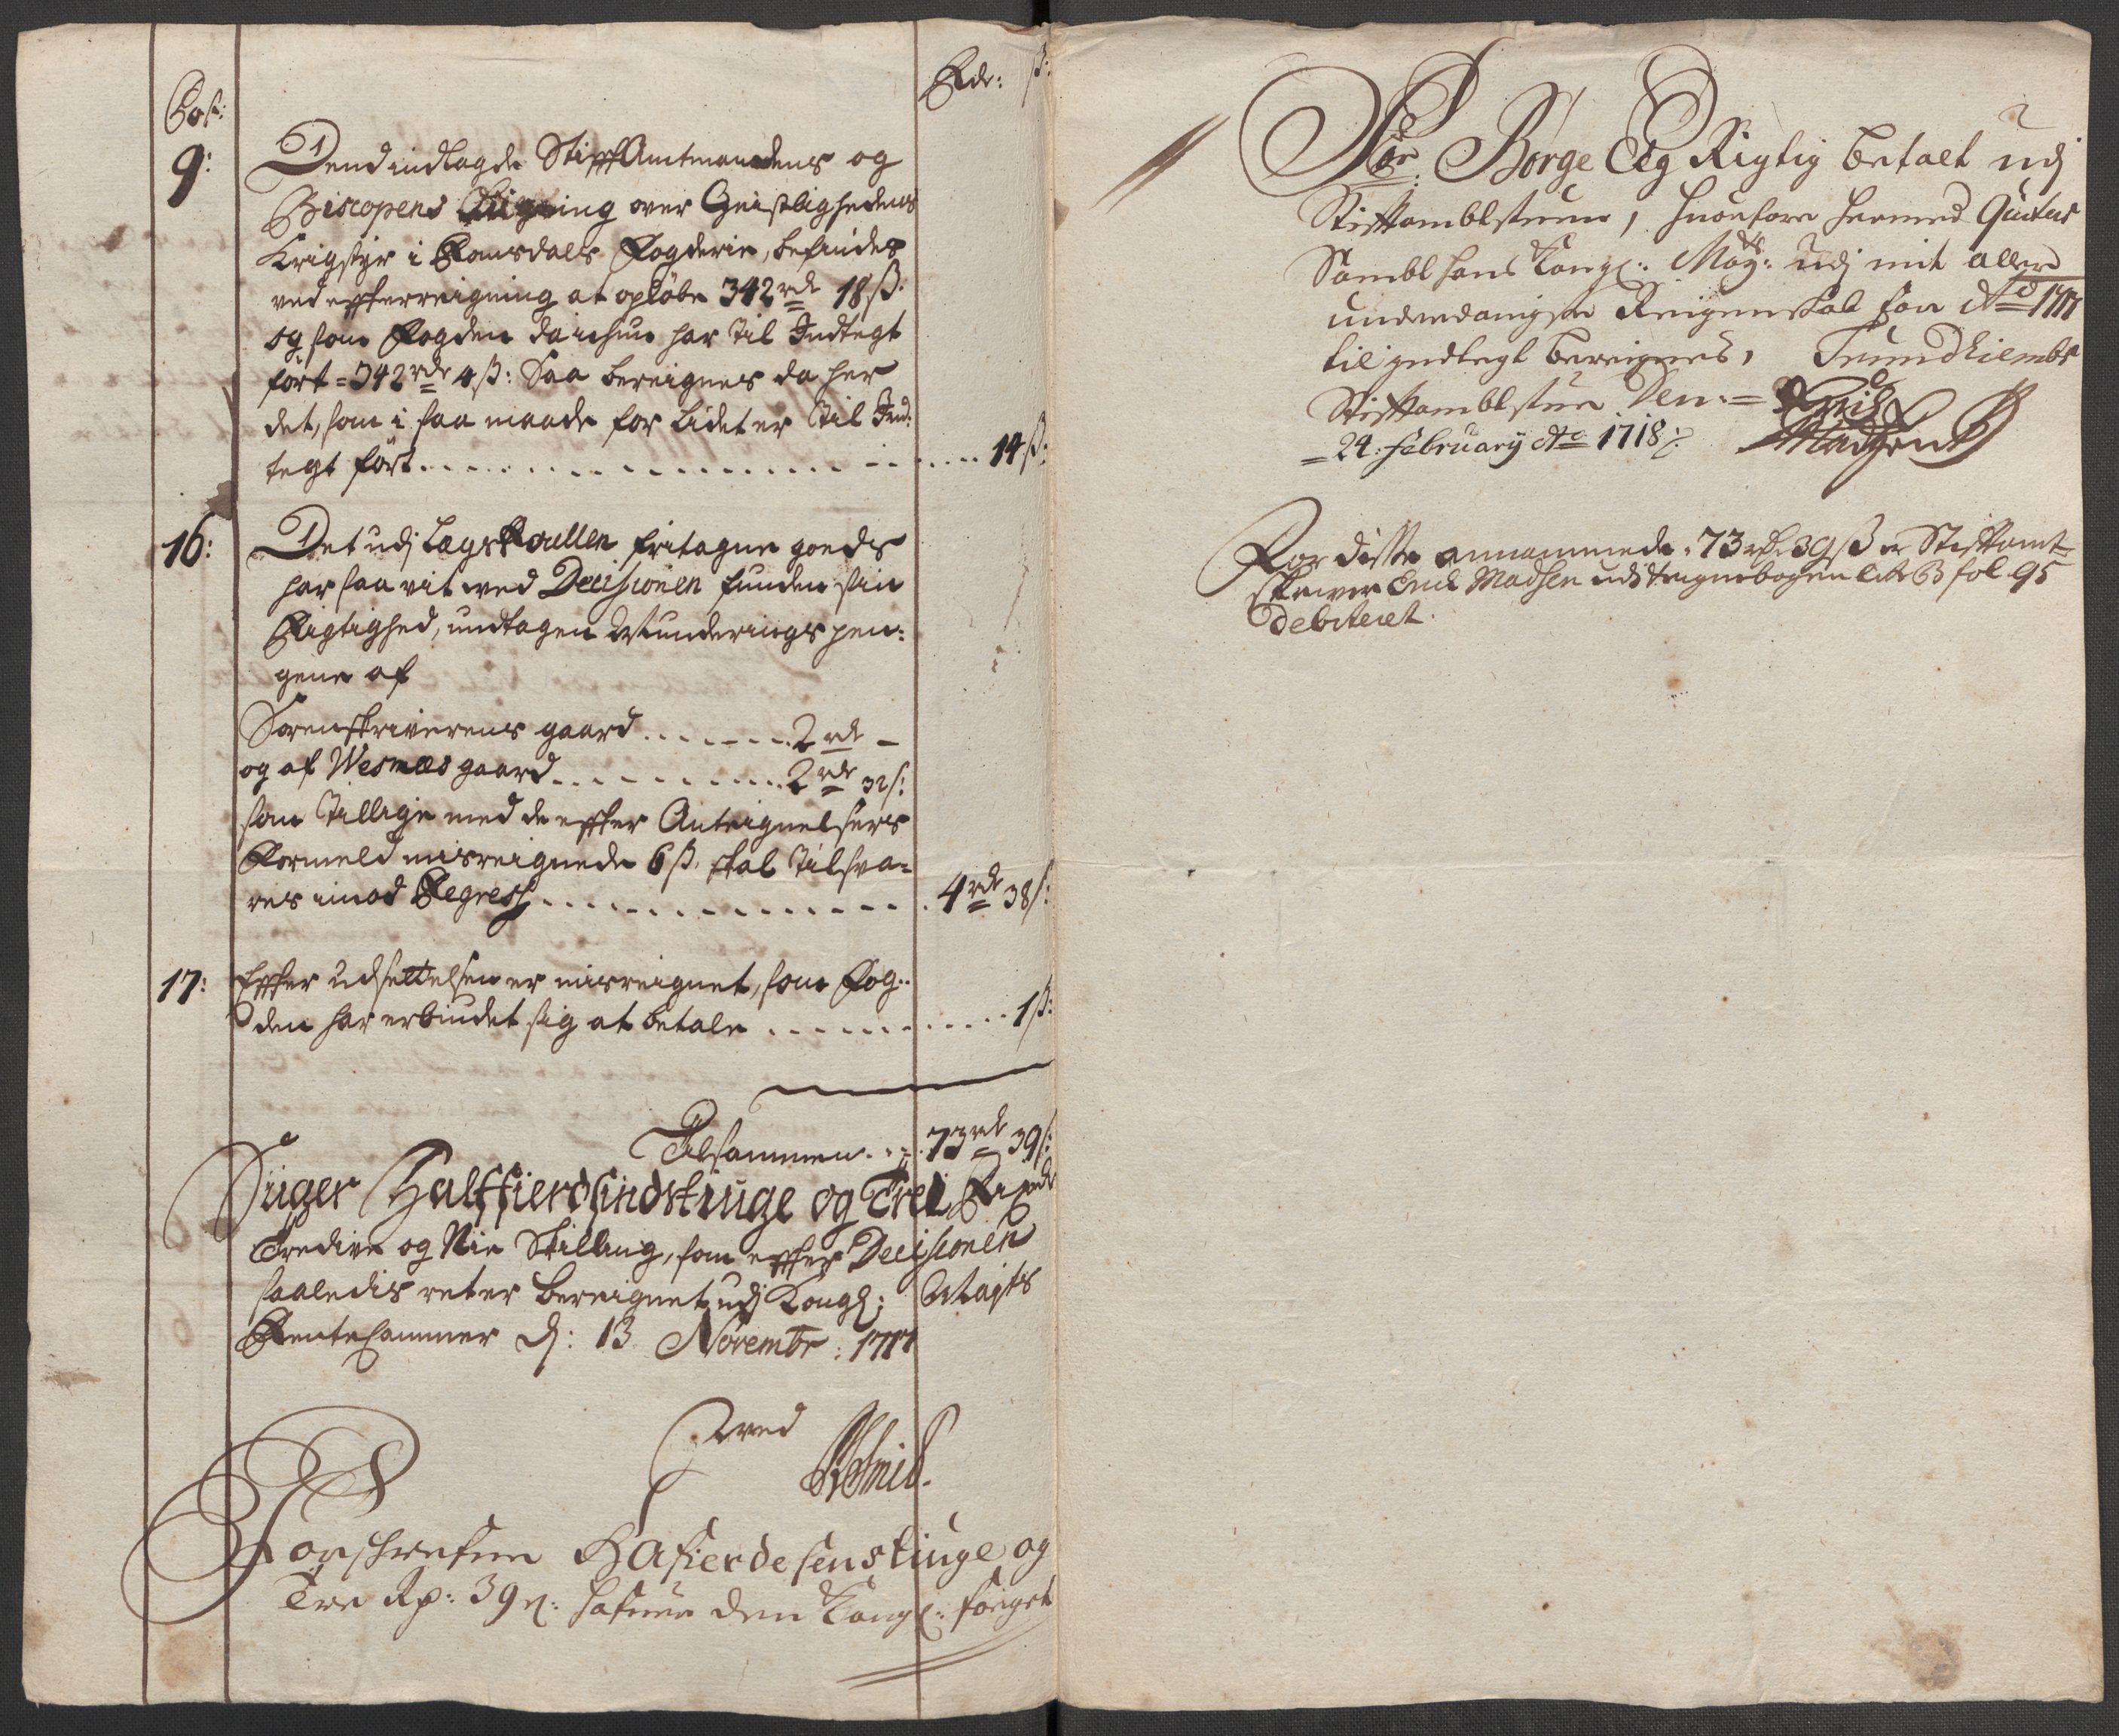 Rdr: ß:
Post:
9: Dend indlagde StifftAmtmandens og
Biscopens Ligning over Geistlighedens
Krigstyr i Romsdals Fogderie, befindes
ved effterreigning at opløbe 342 rdr 18 ß.
og som Fogden derimod har til Indtegt
ført = 342 rdr 4 ß: Saa bereignes da her
det, som i saa maade for lidet er til Ind:
tegt ført ... 14 ß:
16: Det udj LægsRoullen fritagne goeds
har saa vit ved Decisionen funden sin
Rigtighed, undtagen Munderings pen:
gene af
Sorenskriverens gaard ... 2 rdr –
og af Wesnæs gaard ... 2 rdr 32 ß:
som tillige med de effter Anteignelsens
Formeld misreignede 6 ß. skal tilsva=
res imod Regress ... 4 rdr 38 ß:
17: Effter Udsettelsen er misreignet, som Fog:
den har erbiudet sig at betale ... 1 ß:
Tilsammen ... 73 rdr 39 ß:
Siiger Halffierdsindstiuge og Trei Rixdr
Tredive og Nie Skilling, som effter Decisionen
saaledis ret er bereignet udj Kongl: Mayts
RenteCammer d: 13 Novembr: 1717
ved
Forschrefne Hafierdesenstiuge og
Tre Rp: 39 ß: hafuer den Kongl: foiget
Hr. Børge Eeg Rigtig betalt udj
Stiftambtstuen, huorfore hermed Quiteres
Sambt hans Kongl: May:ts udj mit aller
underdanigste Reigenskab for Ao 1717
til indtegt bereignes, Trundhiembs
Stiftambtstue Den: = Erich
= 24: February Ao 1718 ⁒ Madsen
For disse annammede 73 rdr 39 ß er Stiftamt=
skriver Erich Madsen udi Reignebogen litr B fol 95
debiteret.